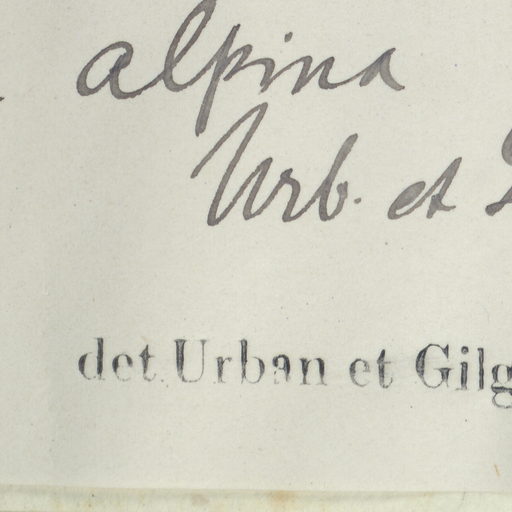 alpina
Urb. et
det. Urban et Gilg